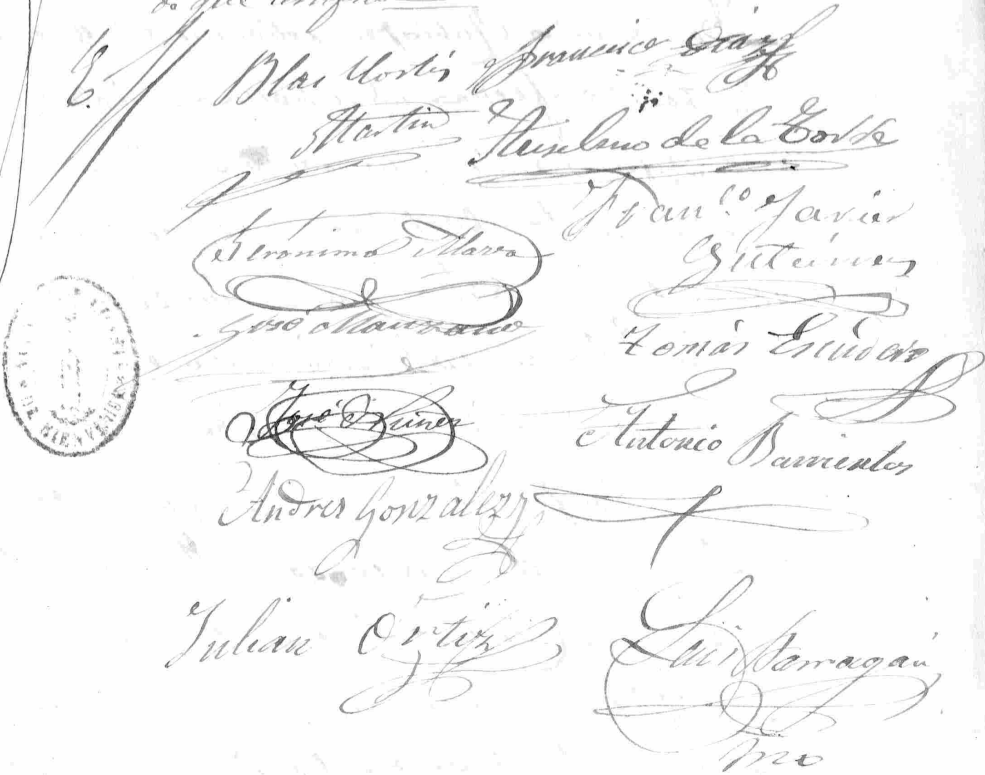 do que
E.
Blas Cortés Francisco Diaz
Martin Anselmo de la Torre
Fran.co Javier
Gerónimo Maria Gutierrez
José Manzano Tomás Escudero
José Nuñez Antonio Barrientos
Andres Gonzalez
Julian Ortiz Luis Barragán
DE BIENVENIDA